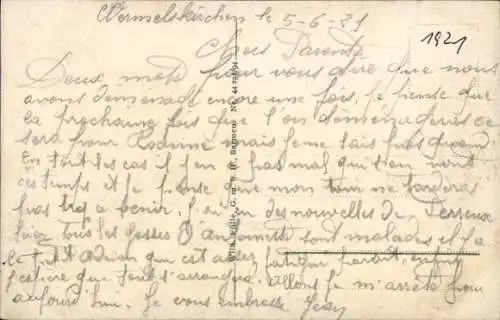 Wermelskirchen le 5-6-21
1921
Chers Parents
Deux mots pour vous dire que nous
avons déménagé encore une fois, je pense que
la prochaine fois que l'on déménagera ce
sera pour Roanne mais je ne sais pas quand
En tout les cas il s'en pas mal qui s'en vont
ces temps et je pense que mon tour ne tardera
pas trop a venir. J'ai eu des nouvelles de Perreux
tous les gosses d'Antoinette sont malades il y a
le petit adrien qui est assez fatigué parait, enfin
j'espère que tout s'arrangera. Allons je m'arrête pour
aujourd'hui. Je vous embrasse Jean
Wilh. G. m. b. H., Barmen Nr.